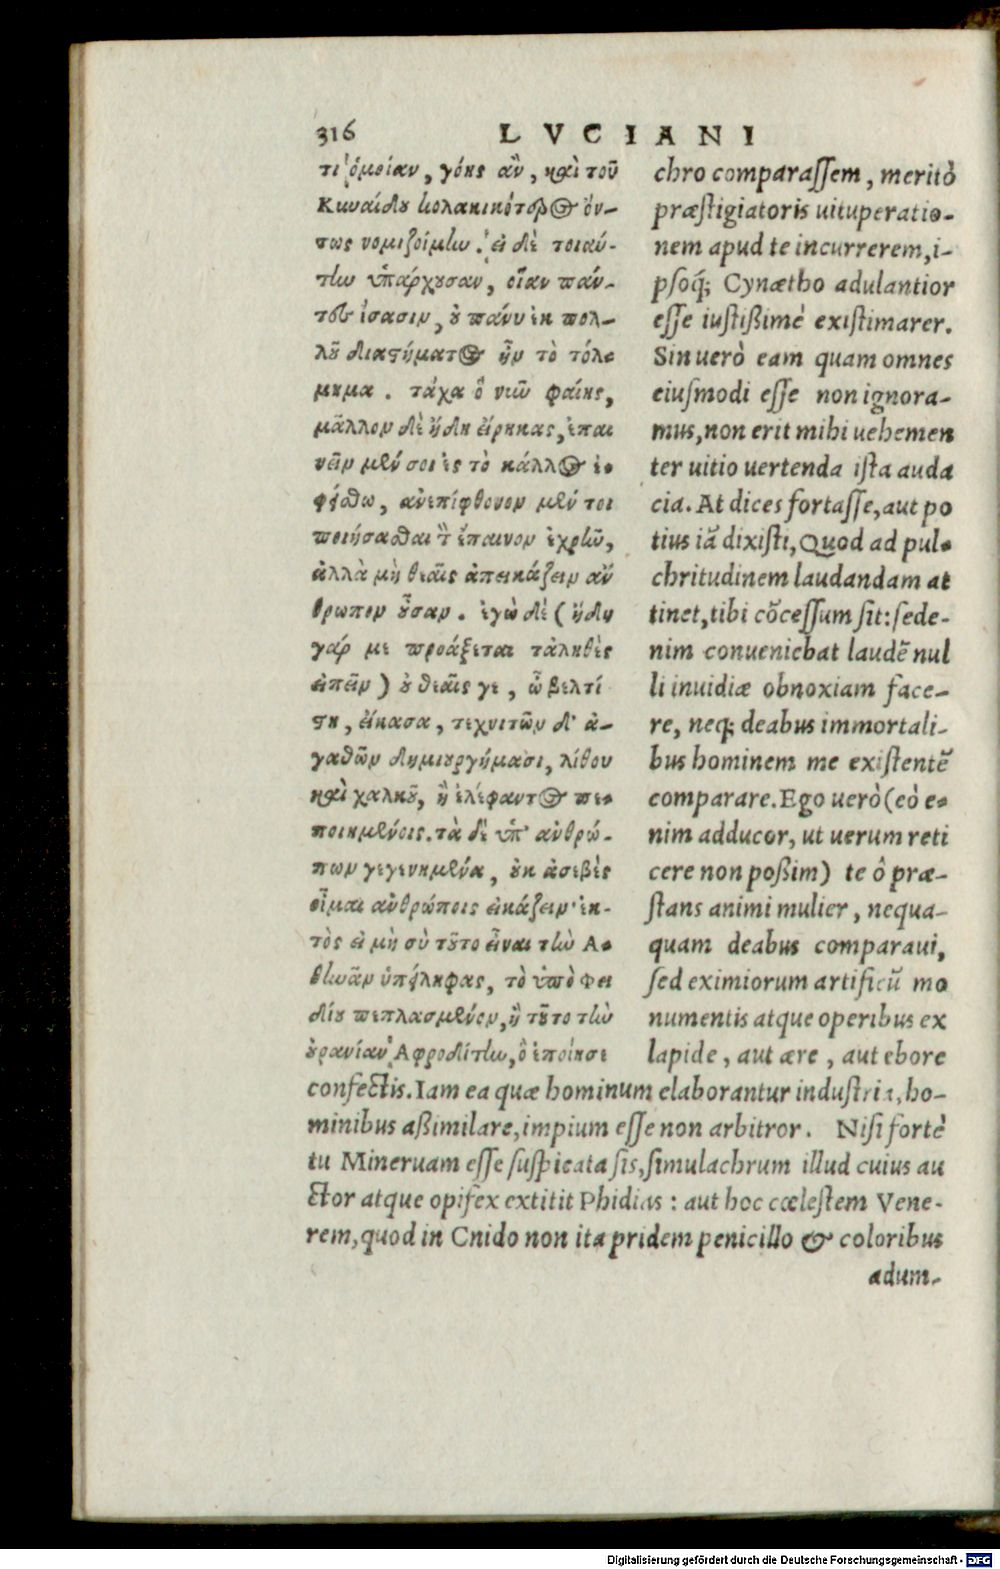 316 LVCIANI
τι ὁμοίαν, γόης ἂν, καὶ τοῦ
Κυναίδου κολακικότερος ὄν-
τως νομιζοίμην. εἰ δὲ τοιαύ-
την ὑπάρχουσαν, οἵαν πάν-
τες ἴσασιν, οὐ πάνυ ἐκ πολ-
λοῦ διαστήματος ἦν τὸ τόλ-
μημα. τάχα δ' οὖν φαίης,
μᾶλλον δὲ ἤδη εἴρηκας, ἐπαι
νεῖν μέν σοι ἐς τὸ κάλλος ἐ-
φείσθω, ἀνεπίφθονον μέν τοι
ποιήσασθαι τὸν ἔπαινον ἐχρῆν,
ἀλλὰ μὴ θεαῖς ἀπεικάζειν ἄν
θρωπον οὖσαν. ἐγὼ δὲ (ἤδη
γάρ με προάξεται τἀληθὲς
εἰπεῖν) οὐ θεαῖς γε, ὦ βελτί
στη, εἴκασα, τεχνιτῶν δ' ἀ-
γαθῶν δημιουργήμασι, λίθου
καὶ χαλκοῦ, ἢ ἐλέφαντος πε-
ποιημένοις. τὰ δὲ ὑπ' ἀνθρώ-
πων γεγενημένα, οὐκ ἀσεβὲς
οἶμαι ἀνθρώποις εἰκάζειν· ἐκ-
τὸς εἰ μὴ σὺ τοῦτο εἶναι τὴν Ἀ-
θηνᾶν ὑπείληφας, τὸ ὑπὸ Φει
δίου πεπλασμένον, ἢ τοῦτο τὴν
οὐρανίαν Ἀφροδίτην, ὃ ἐποίησε
chro comparassem, meritò
præstigiatoris uituperatio-
nem apud te incurrerem, i-
psoq́; Cynætho adulantior
esse iustißimè existimarer.
Sin uerò eam quam omnes
eiusmodi esse non ignora-
mus, non erit mihi uehemen
ter uitio uertenda ista auda
cia. At dices fortasse, aut po
tius iã dixisti, Quod ad pul-
chritudinem laudandam at
tinet, tibi cõcessum sit: sed e-
nim conueniebat laudẽ nul
li inuidiæ obnoxiam face-
re, neq; deabus immortali-
bus hominem me existentẽ
comparare. Ego uerò (eò e-
nim adducor, ut uerum reti
cere non poßim) te ô præ-
stans animi mulier, nequa-
quam deabus comparaui,
sed eximiorum artificũ mo
numentis atque operibus ex
lapide, aut ære, aut ebore
confectis. Iam ea quæ hominum elaborantur industria, ho-
minibus aßimilare, impium esse non arbitror. Nisi fortè
tu Mineruam esse suspicata sis, simulachrum illud cuius au
ctor atque opifex extitit Phidias: aut hoc cœlestem Vene-
rem, quod in Cnido non ita pridem penicillo & coloribus
adum-
Digitalisierung gefördert durch die Deutsche Forschungsgemeinschaft - DFG